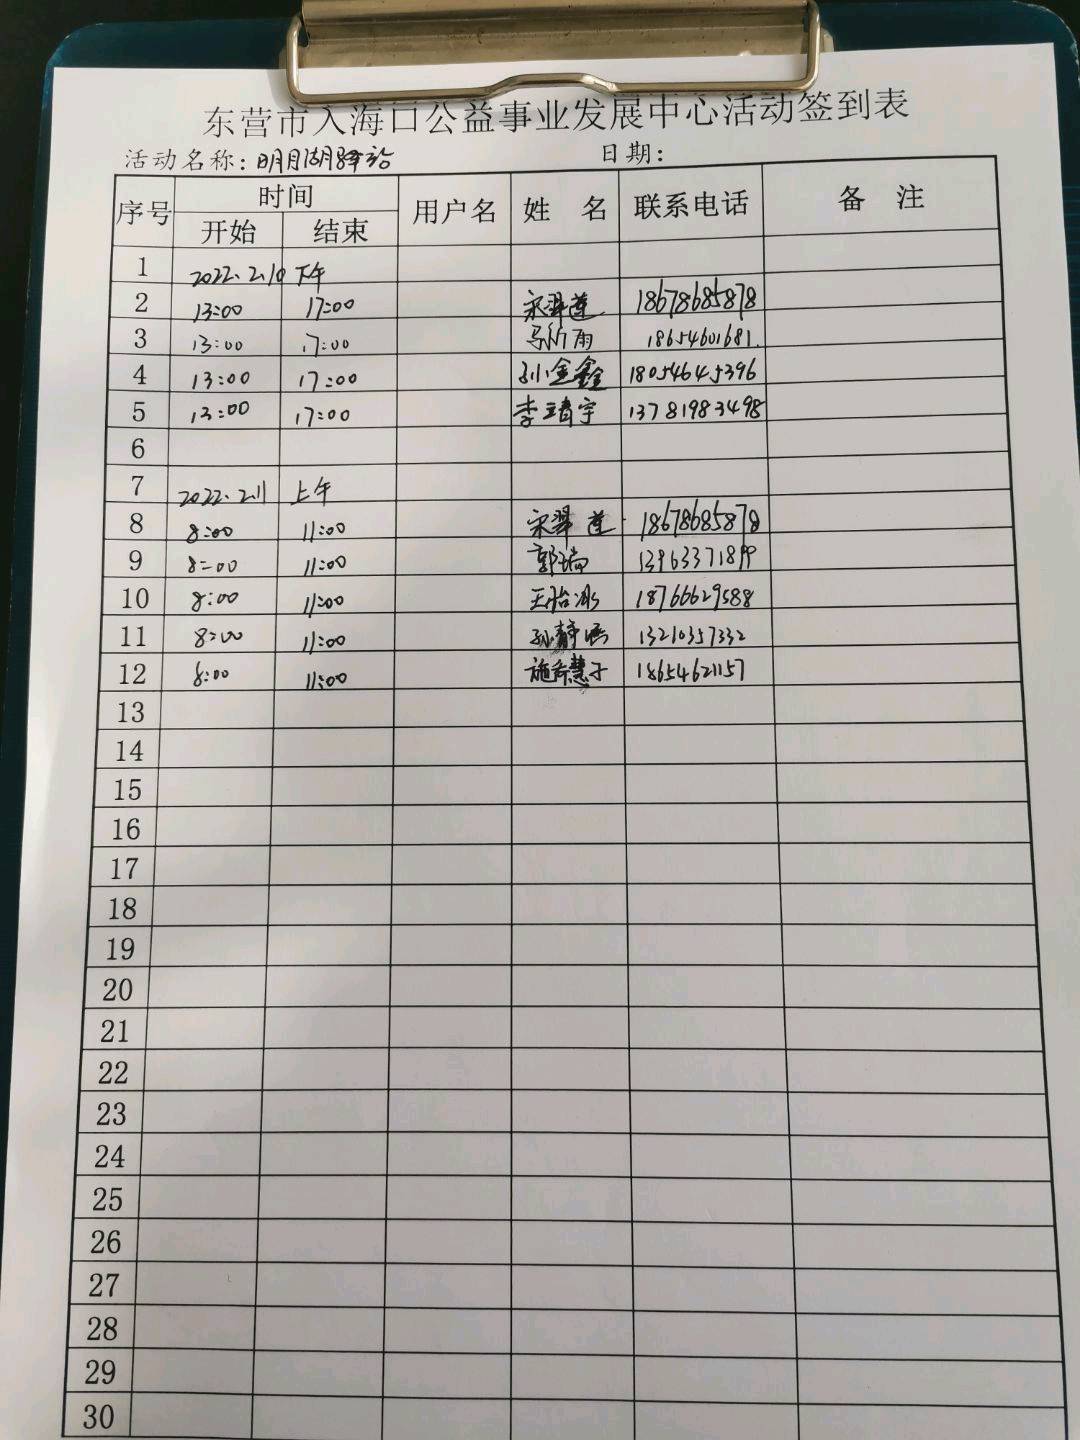 东营市入海口公益事业发展中心活动签到表
活动名称：明月湖驿站 日期：
序号 时间 用户名 姓 名 联系电话 备 注
开始 结束
1 2022.2.10 下午
2 13:00 17:00 宋翠莲 18678685878
3 13:00 17:00 18654601681.
4 13:00 17:00 孙金鑫 18054645396
5 13:00 17:00 李靖宇 13781983498
6
7 2022.2.11 上午
8 8:00 11:00 宋翠莲 18678685878
9 8:00 11:00 郭瑞 13963371899
10 8:00 11:00 王怡冰 18766629588
11 8:00 11:00 孙静 13210357332
12 8:00 11:00 施希慧子 18654621157
13
14
15
16
17
18
19
20
21
22
23
24
25
26
27
28
29
30